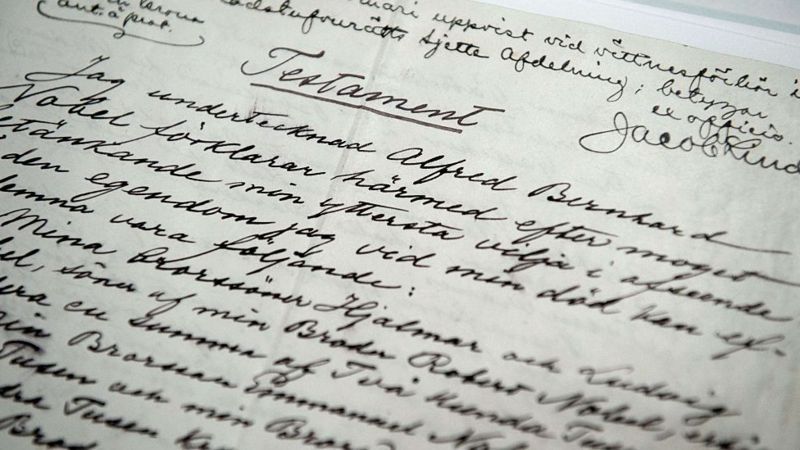 uppvist vid vittnesförhör i
Sjette Afdelning; betygar
ex officio.
Jacob
Testament
Jag undertecknad Alfred Bernhard
Nobel förklarar härmed efter moget
etänkande min yttersta vilja i afseende
den egendom jag vid min död kan ef-
lemna vara följande:
Mina Brorssöner Hjalmar och Ludvig
el, söner af min Broder Robert Nobel,
en summa af Två Hundra
Brorsson Emmanuel
Tusen och min
Tusen